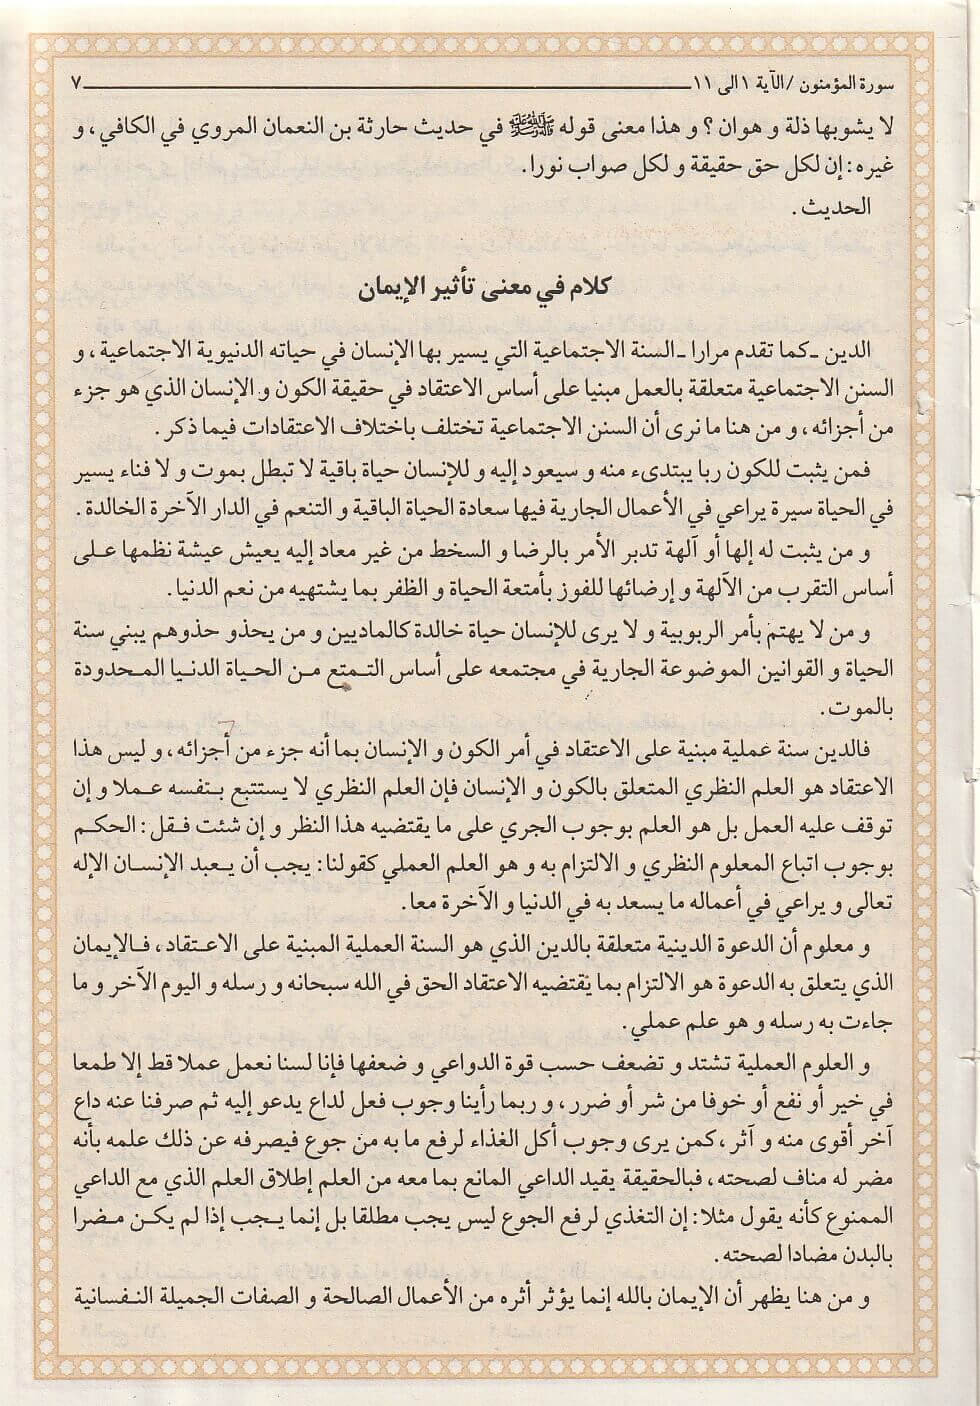 سورة المؤمنون /الآية ١الى ١١ ٧
لا يشوبها ذلة و هوان ؟ و هذا معنى قوله ﷺ في حديث حارثة بن النعمان المروي في الكافي ، و
غيره : إن لكل حق حقيقة و لكل صواب نورا.
الحديث .
كلام في معنى تأثير الإيمان
الدين ـ كما تقدم مرارا ـ السنة الاجتماعية التي يسير بها الإنسان في حياته الدنيوية الاجتماعية ، و
السنن الاجتماعية متعلقة بالعمل مبنيا على أساس الاعتقاد في حقيقة الكون و الإنسان الذي هو جزء
من أجزائه ، و من هنا ما نرى أن السنن الاجتماعية تختلف باختلاف الاعتقادات فيما ذكر .
فمن يثبت للكون ربا يبتدىء منه و سيعود إليه و للإنسان حياة باقية لا تبطل بموت و لا فناء يسير
في الحياة سيرة يراعي في الأعمال الجارية فيها سعادة الحياة الباقية و التنعم في الدار الآخرة الخالدة .
و من يثبت له إلها أو آلهة تدبر الأمر بالرضا و السخط من غير معاد إليه يعيش عيشة نظمها على
أساس التقرب من الآلهة و إرضائها للفوز بأمتعة الحياة و الظفر بما يشتهيه من نعم الدنيا.
و من لا يهتم بأمر الربوبية و لا يرى للإنسان حياة خالدة كالماديين و من يحذو حذوهم يبني سنة
الحياة و القوانين الموضوعة الجارية في مجتمعه على أساس التمتع من الحياة الدنيا المحدودة
بالموت.
فالدين سنة عملية مبنية على الاعتقاد في أمر الكون و الإنسان بما أنه جزء من أجزائه ، و ليس هذا
الاعتقاد هو العلم النظري المتعلق بالكون و الإنسان فإن العلم النظري لا يستتبع بنفسه عملا و إن
توقف عليه العمل بل هو العلم بوجوب الجري على ما يقتضيه هذا النظر و إن شئت فقل : الحكم
بوجوب اتباع المعلوم النظري و الالتزام به و هو العلم العملي كقولنا : يجب أن يعبد الإنسان الإله
تعالى و يراعي في أعماله ما يسعد به في الدنيا و الآخرة معا.
و معلوم أن الدعوة الدينية متعلقة بالدين الذي هو السنة العملية المبنية على الاعتقاد ، فالإيمان
الذي يتعلق به الدعوة هو الالتزام بما يقتضيه الاعتقاد الحق في الله سبحانه و رسله و اليوم الآخر و ما
جاءت به رسله و هو علم عملي.
و العلوم العملية تشتد و تضعف حسب قوة الدواعي و ضعفها فإنا لسنا نعمل عملا قط إلا طمعا
في خير أو نفع أو خوفا من شر أو ضرر ، و ربما رأينا وجوب فعل لداع يدعو إليه ثم صرفنا عنه داع
آخر أقوى منه و آثر ، كمن يرى وجوب أكل الغذاء لرفع ما به من جوع فيصرفه عن ذلك علمه بأنه
مضر له مناف لصحته ، فبالحقيقة يقيد الداعي المانع بما معه من العلم إطلاق العلم الذي مع الداعي
الممنوع كأنه يقول مثلا : إن التغذي لرفع الجوع ليس يجب مطلقا بل إنما يجب إذا لم يكن مضرا
بالبدن مضادا لصحته.
و من هنا يظهر أن الإيمان بالله إنما يؤثر أثره من الأعمال الصالحة و الصفات الجميلة النفسانية